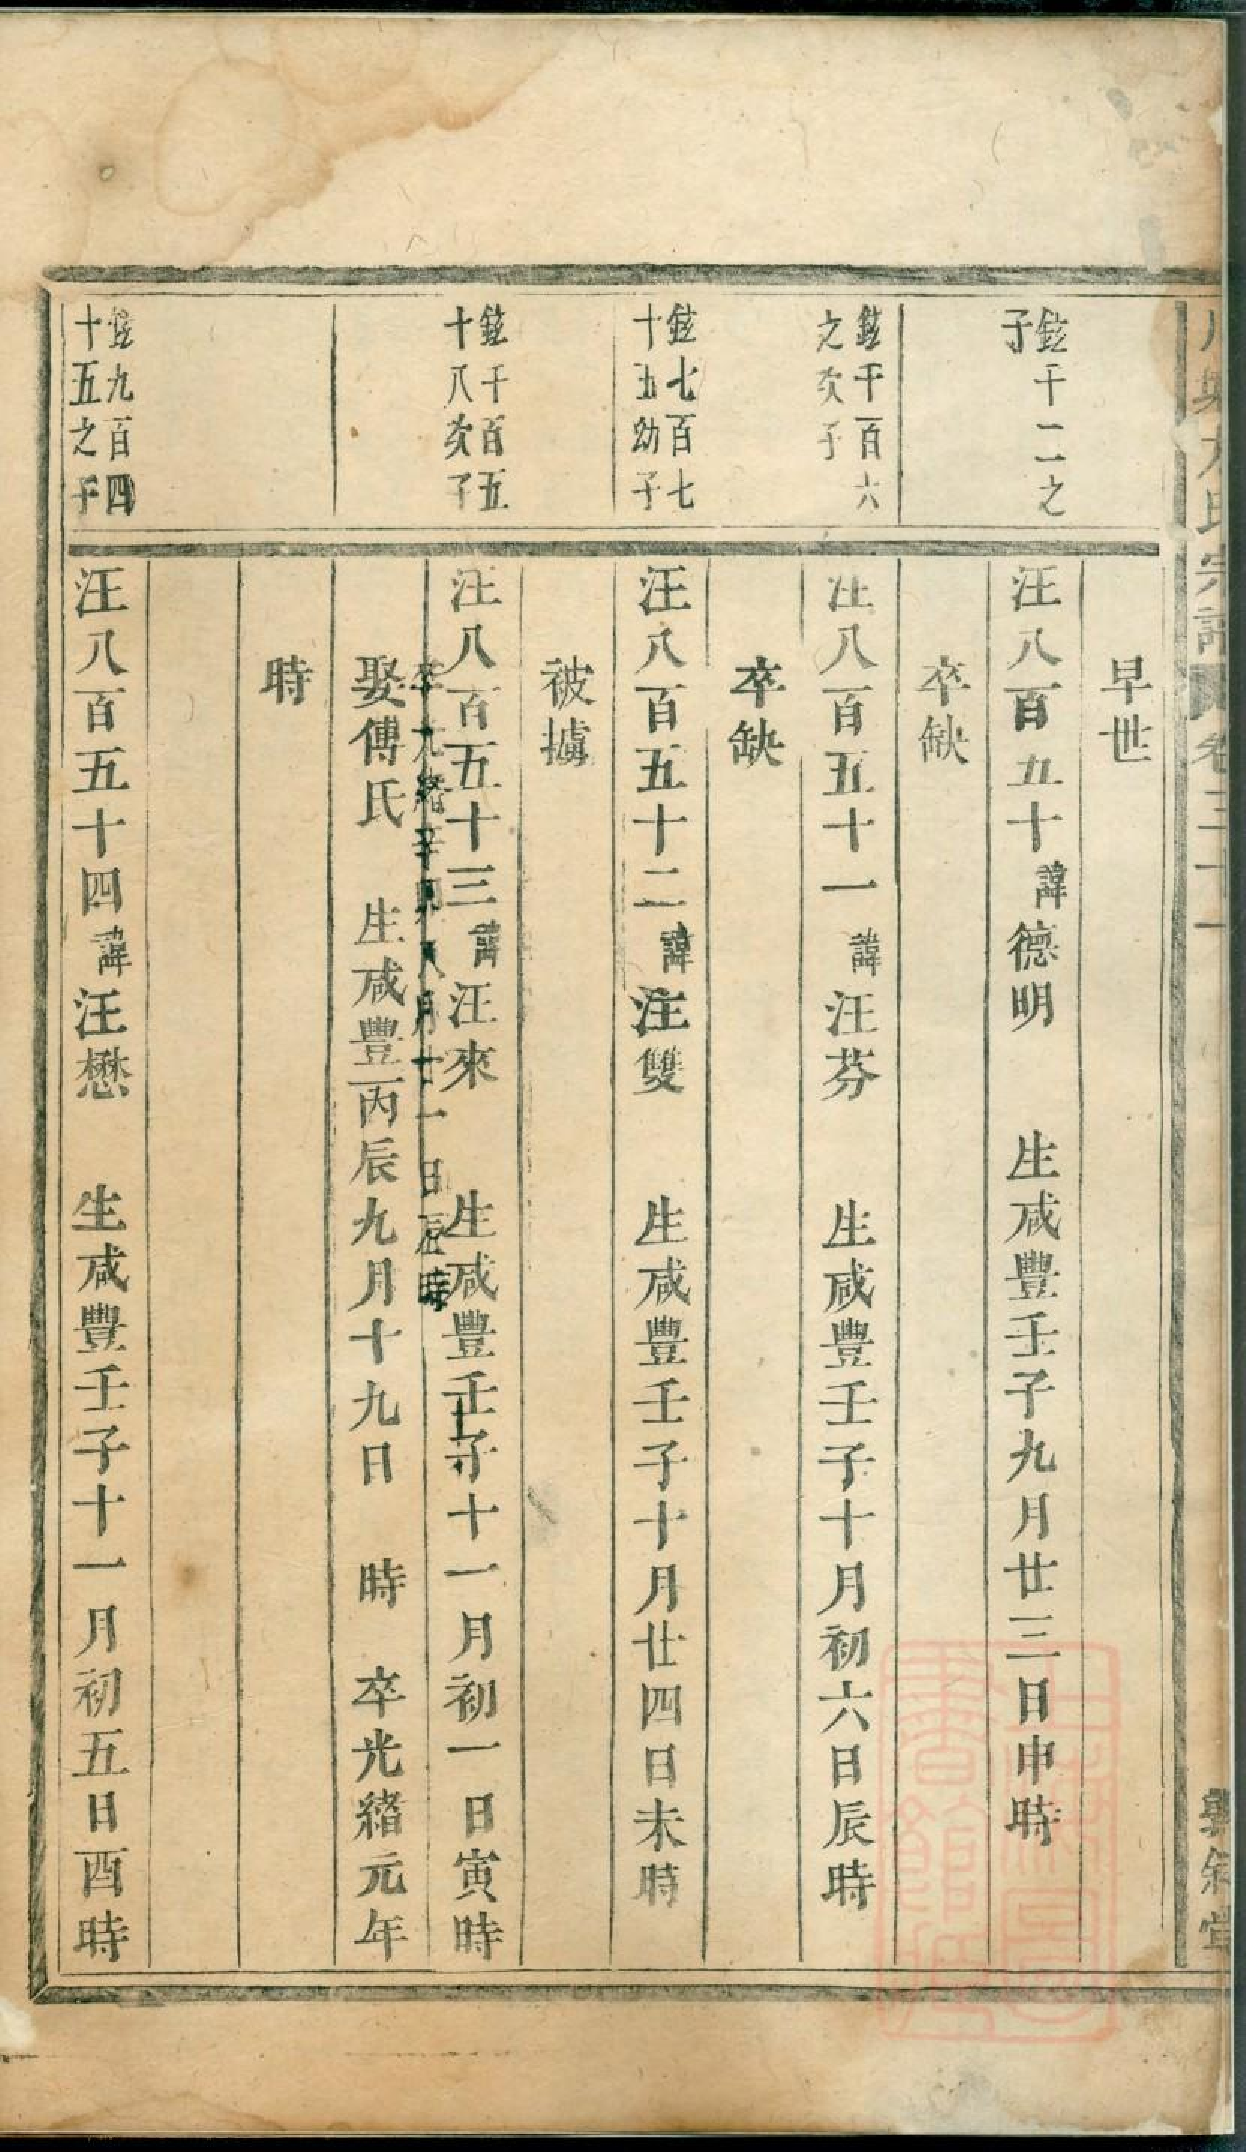 氏宗譜
卷三十一
早世
鉉千二之
子
汪八百五十諱德明 生咸豐壬子九月廿三日申時
卒缺
鉉千百六
之次子
汪八百五十一諱汪芬 生咸豐壬子十月初六日辰時
卒缺
鉉七百七
十五幼子
汪八百五十二諱汪雙 生咸豐壬子十月廿四日未時
被擄
鉉千百五
十八次子
汪八百五十三諱汪來 生咸豐壬子十一月初一日寅時
卒光緒辛卯八月廿一日辰時
娶傅氏 生咸豐丙辰九月十九日 時 卒光緒元年
時
鉉九百四
十五之子
汪八百五十四諱汪懋 生咸豐壬子十一月初五日酉時